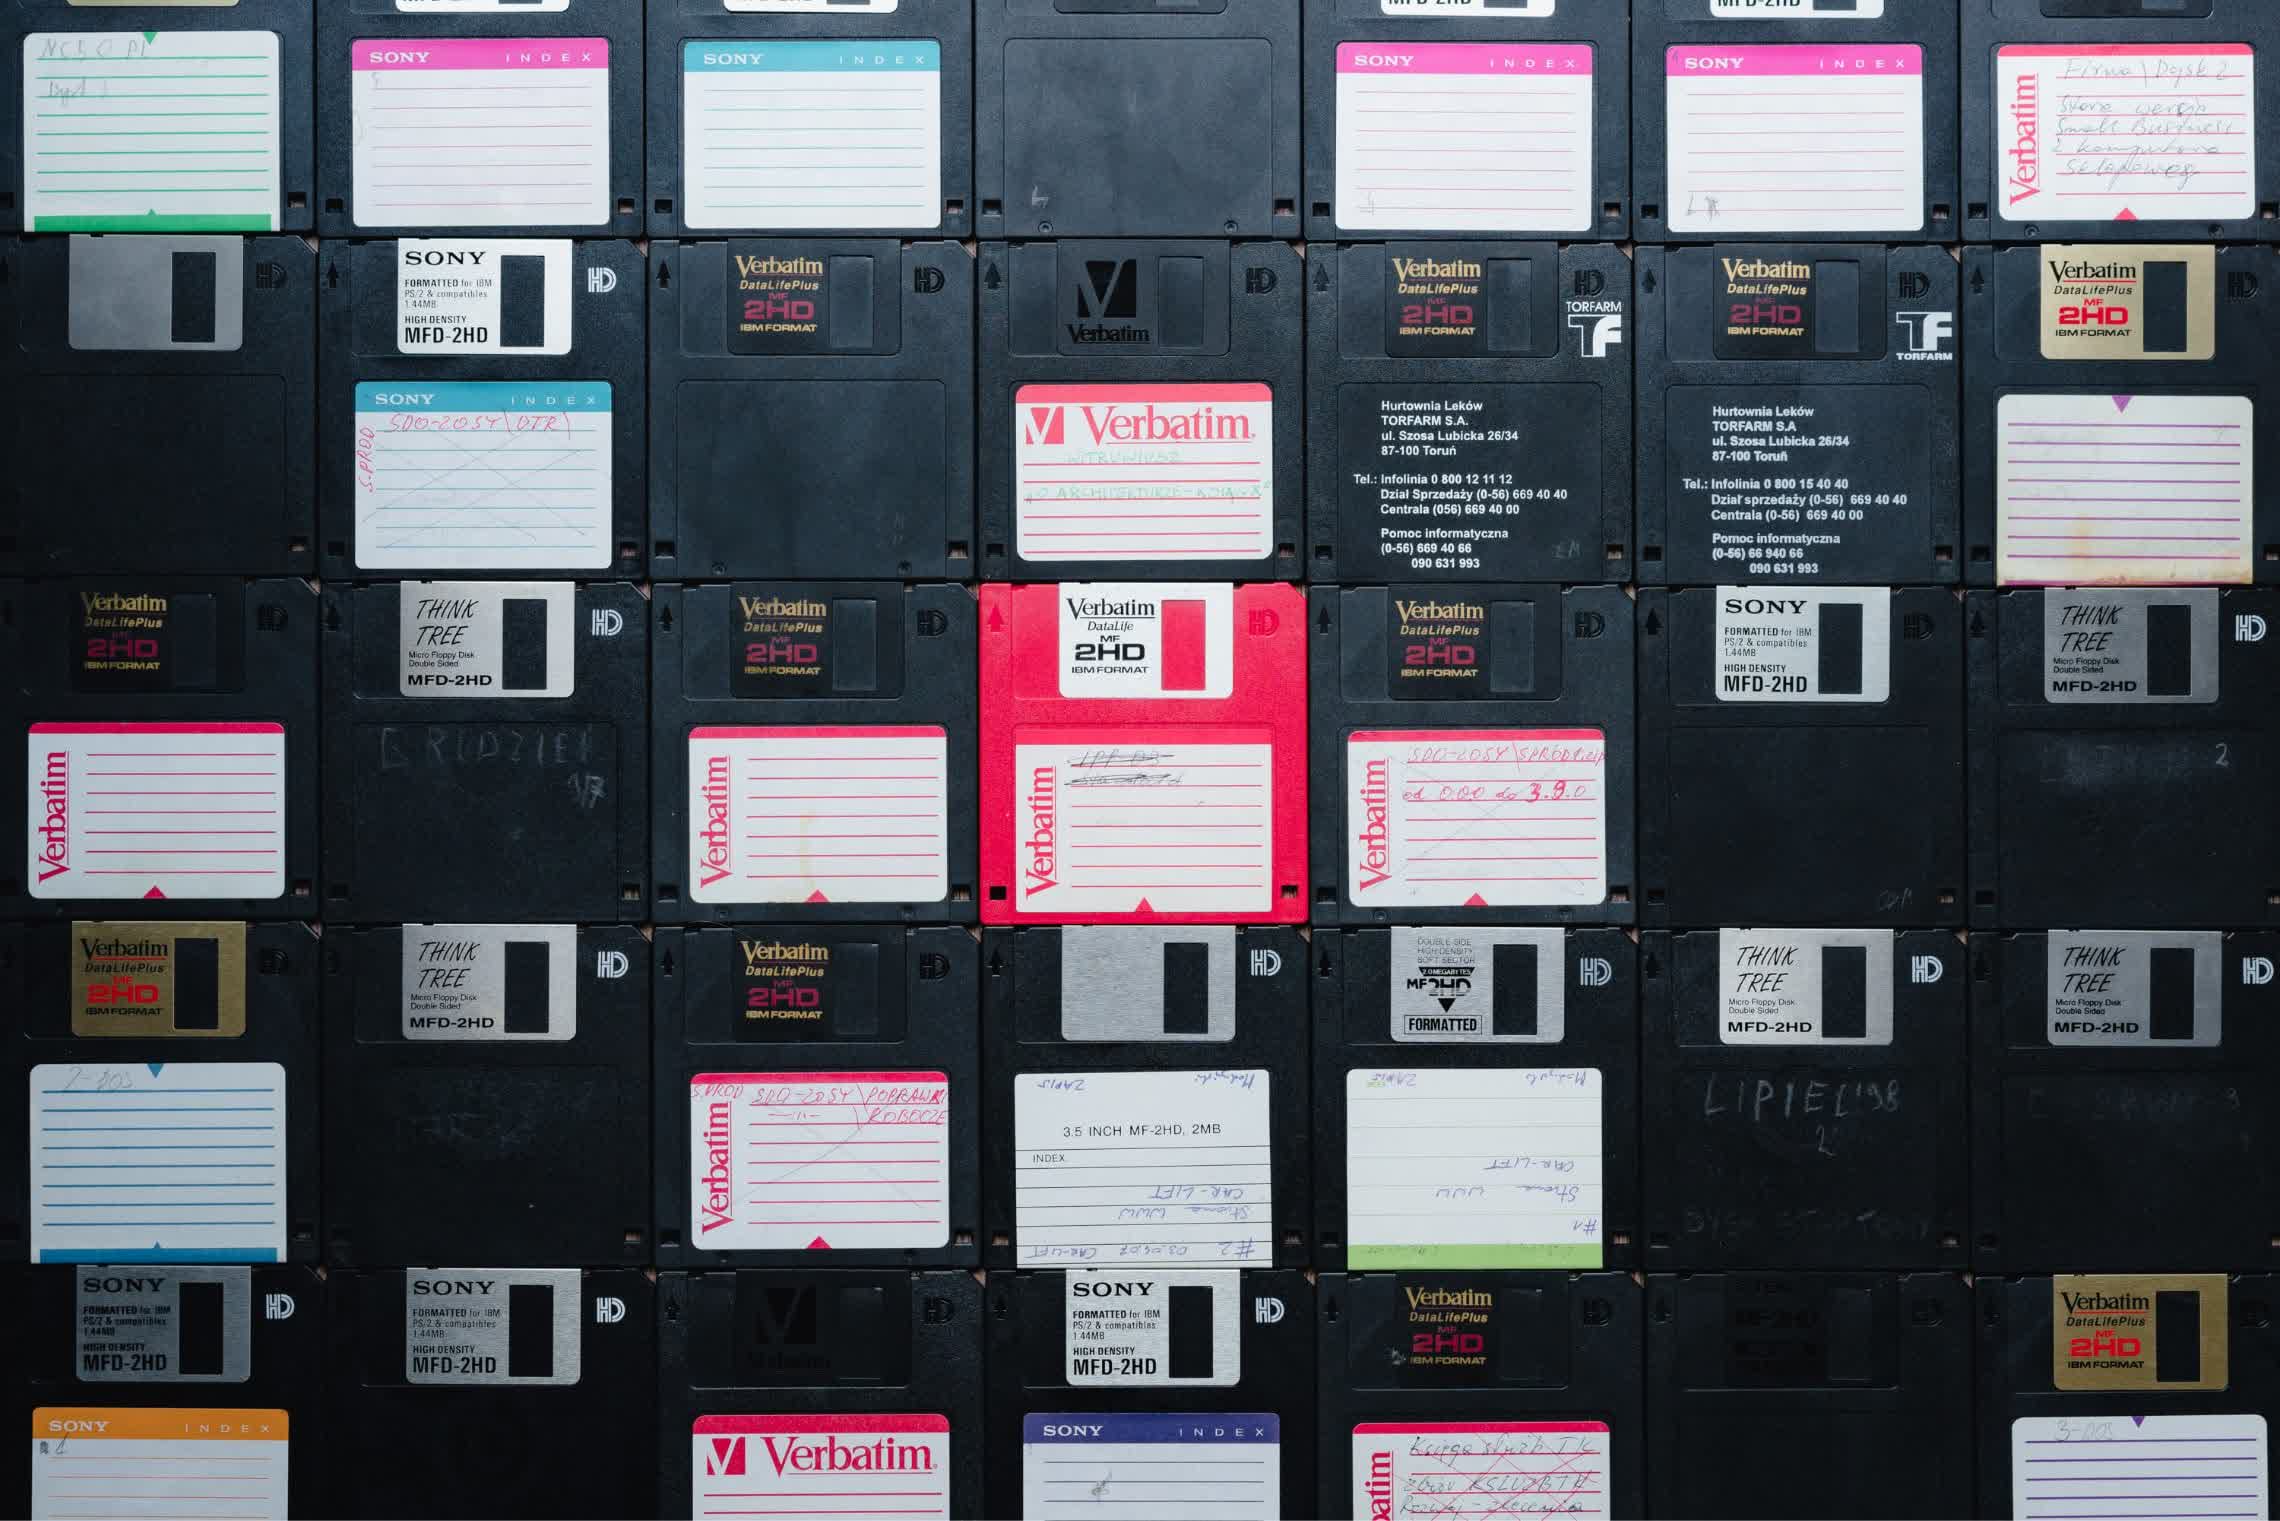 MFD-2HD
MFD-2HD
MFD-2HD
SONY INDEX
SONY INDEX
4
SONY INDEX
SONY INDEX
Verbatim
Firma \ Dysk 2
Small Business
HD
SONY
FORMATTED for IBM
PS/2 & compatibles
1.44MB
HIGH DENSITY
MFD-2HD
HD
SONY INDEX
SDO-ZOSY\DTR\
S.PROD
Verbatim
DataLifePlus
MF
2HD
IBM FORMAT
HD
V
Verbatim
HD
V Verbatim
WITRUWIUSZ
Verbatim
DataLifePlus
MF
2HD
IBM FORMAT
HD
TORFARM
TF
Hurtownia Leków
TORFARM S.A.
ul. Szosa Lubicka 26/34
87-100 Toruń
Tel.: Infolinia 0 800 12 11 12
Dział Sprzedaży (0-56) 669 40 40
Centrala (056) 669 40 00
Pomoc informatyczna
(0-56) 669 40 66
090 631 993
Verbatim
DataLifePlus
MF
2HD
IBM FORMAT
HD
TF
TORFARM
Hurtownia Leków
TORFARM S.A
ul. Szosa Lubicka 26/34
87-100 Toruń
Tel.: Infolinia 0 800 15 40 40
Dział sprzedaży (0-56) 669 40 40
Centrala (0-56) 669 40 00
Pomoc informatyczna
(0-56) 66 940 66
090 631 993
Verbatim
DataLifePlus
MF
2HD
IBM FORMAT
HD
Verbatim
DataLifePlus
MF
2HD
IBM FORMAT
HD
Verbatim
THINK
TREE
Micro Floppy Disk
Double Sided
MFD-2HD
HD
Verbatim
DataLifePlus
MF
2HD
IBM FORMAT
HD
Verbatim
Verbatim
DataLife
MF
2HD
IBM FORMAT
HD
Verbatim
Verbatim
DataLifePlus
MF
2HD
IBM FORMAT
HD
Verbatim
od 0.00 do 3.9.0
SONY
FORMATTED for IBM
PS/2 & compatibles
1.44MB
HIGH DENSITY
MFD-2HD
HD
THINK
TREE
Micro Floppy Disk
Double Sided
MFD-2HD
HD
2
Verbatim
DataLifePlus
MF
2HD
IBM FORMAT
HD
THINK
TREE
Micro Floppy Disk
Double Sided
MFD-2HD
HD
Verbatim
DataLifePlus
MF
2HD
IBM FORMAT
HD
S.PROD SDO-ZOSY\POPRAWKI
ROBOCZE
Verbatim
HD
ZAPIS
3.5 INCH MF-2HD, 2MB
INDEX
CAR-LIFT
Strona WWW
#2 CAR-LIFT
DOUBLE SIDE
HIGH DENSITY
SOFT SECTOR
2.0 MEGABYTES
MF2HD
FORMATTED
HD
ZAPIS
CAR-LIFT
Strona WWW
#1
THINK
TREE
Micro Floppy Disk
Double Sided
MFD-2HD
HD
LIPIEC'98
2
THINK
TREE
Micro Floppy Disk
Double Sided
MFD-2HD
HD
SONY
FORMATTED for IBM
PS/2 & compatibles
1.44MB
HIGH DENSITY
MFD-2HD
HD
SONY INDEX
SONY
FORMATTED for IBM
PS/2 & compatibles
1.44MB
HIGH DENSITY
MFD-2HD
HD
HD
V Verbatim
SONY
FORMATTED for IBM
PS/2 & compatibles
1.44MB
HIGH DENSITY
MFD-2HD
HD
SONY INDEX
Verbatim
DataLifePlus
MF
2HD
IBM FORMAT
HD
Księga służb TK
Verbatim
DataLifePlus
MF
2HD
IBM FORMAT
3-DOS